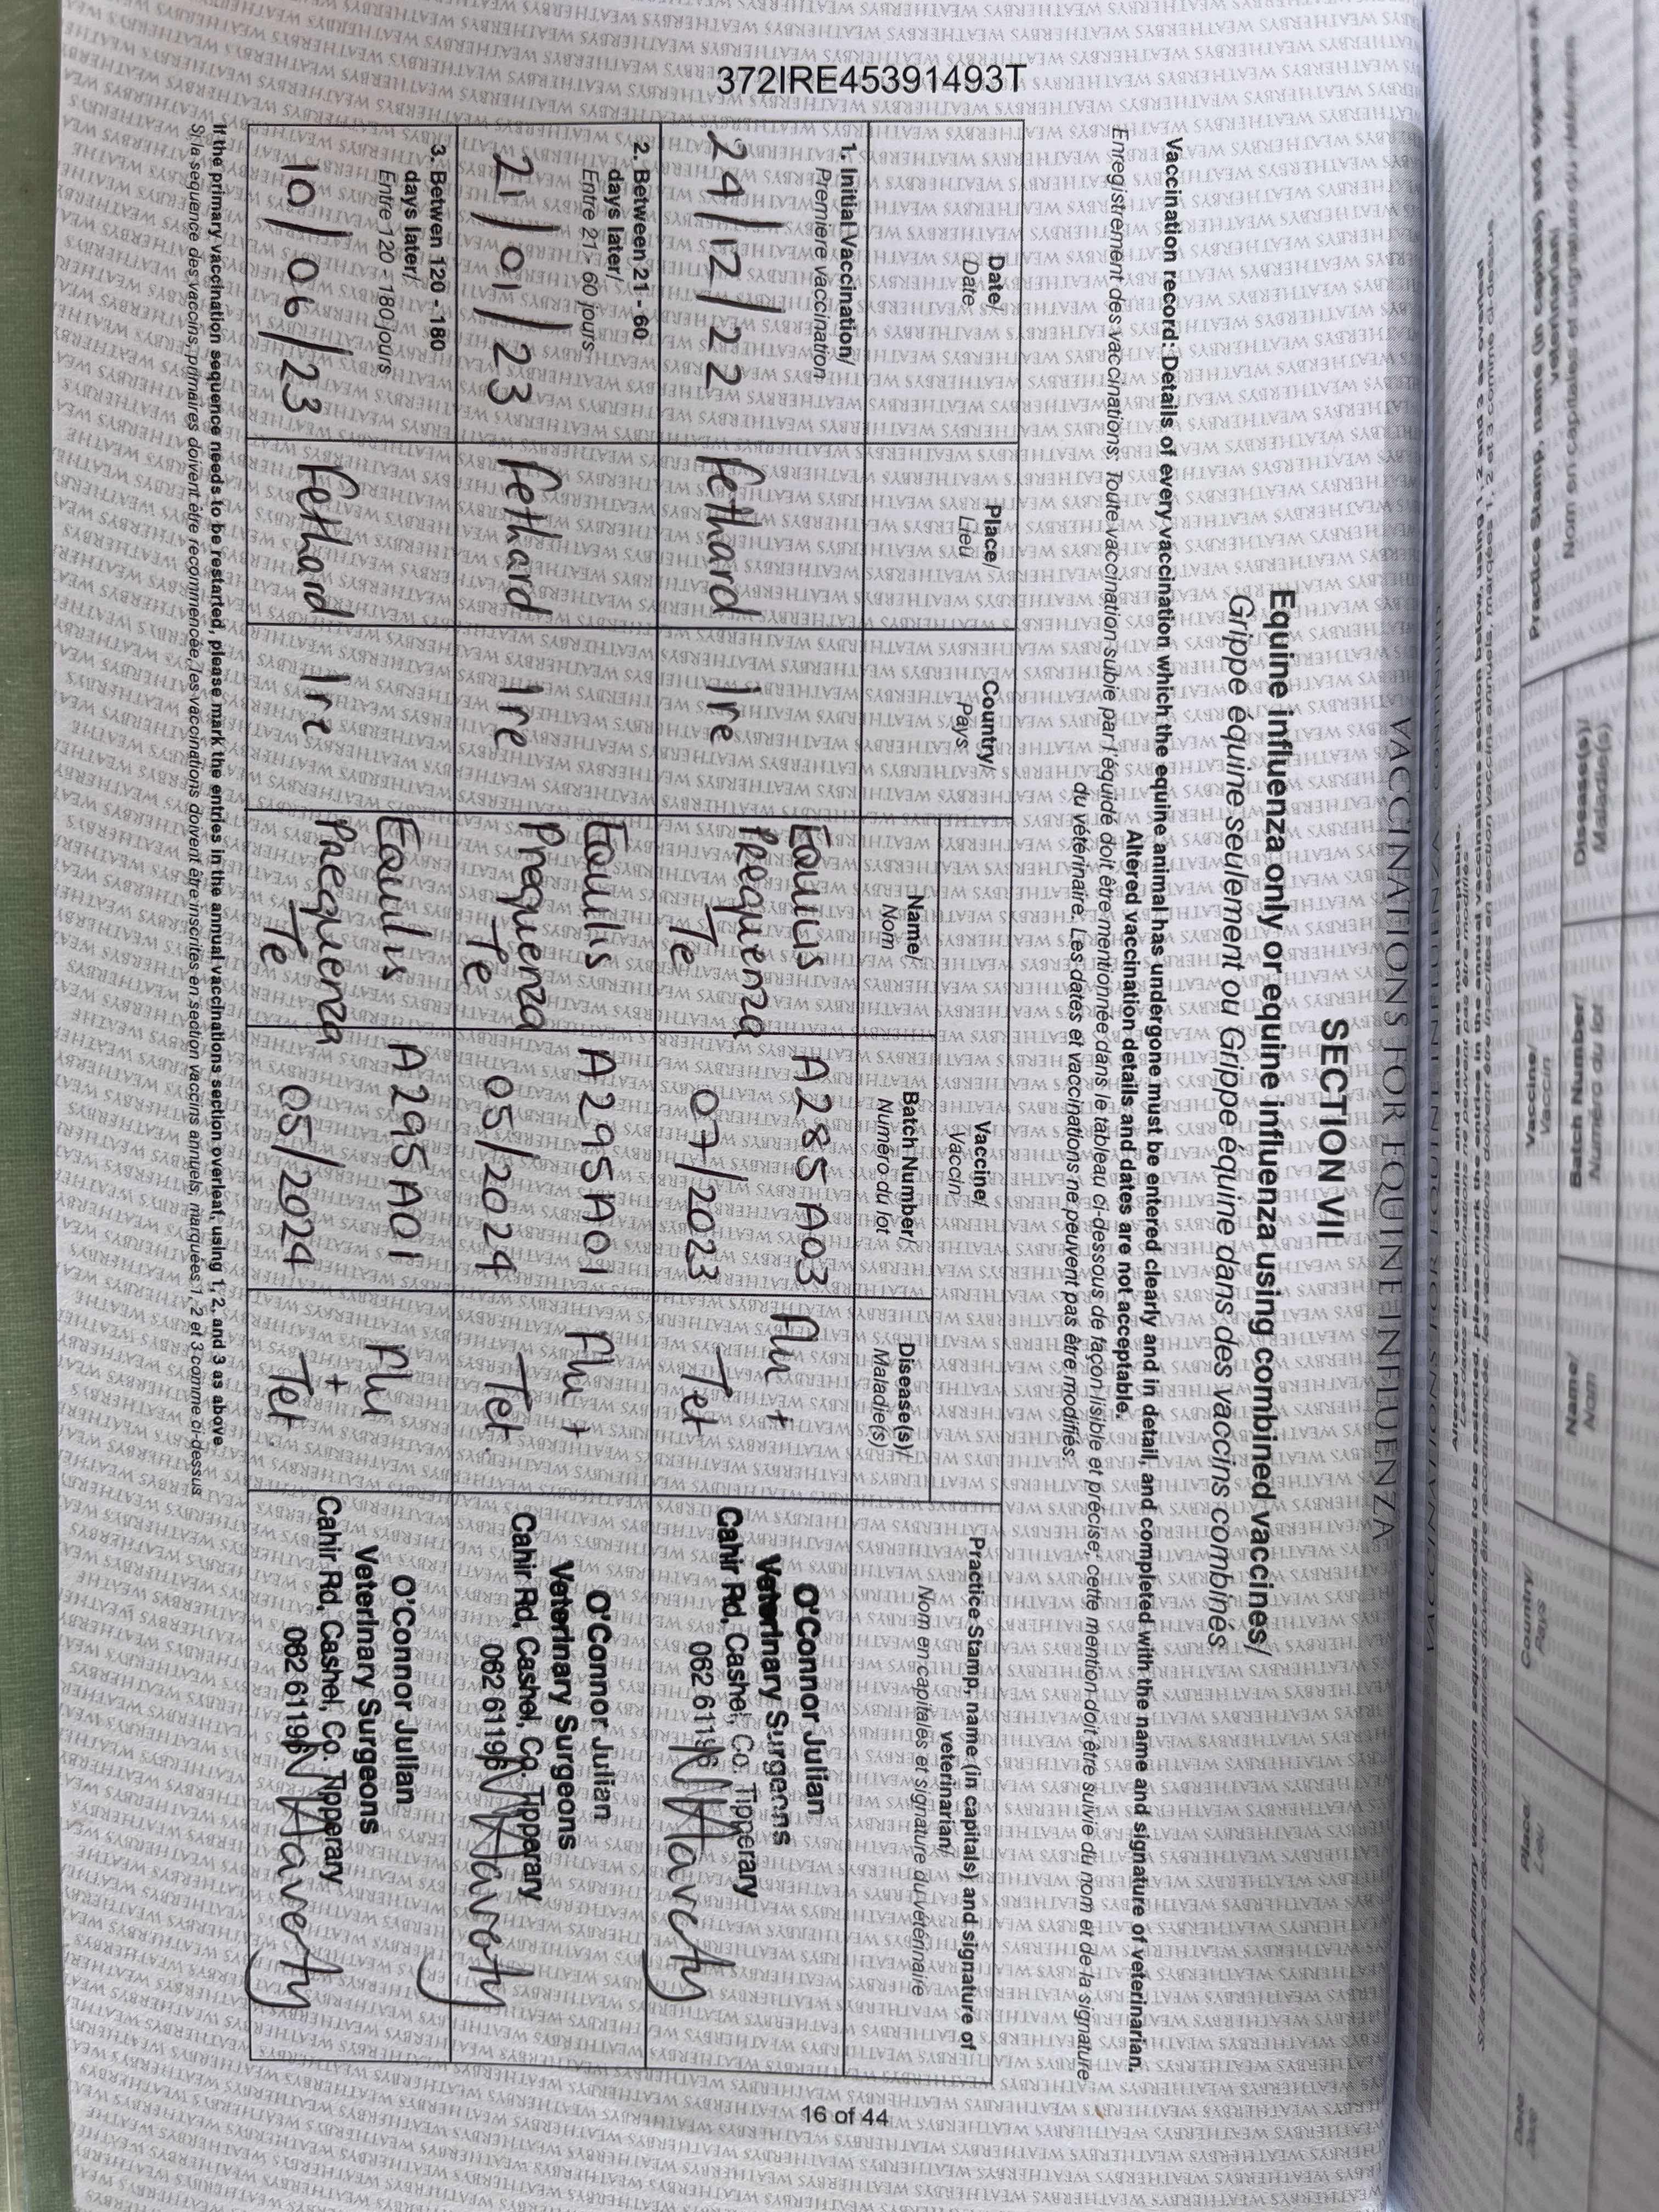 372IRE45391493T
VACCINATIONS FOR EQUINE INFLUENZA
SECTION VII
Equine influenza only or equine influenza using combined vaccines/
Grippe équine seulement ou Grippe équine dans des vaccins combinés
Vaccination record: Details of every vaccination which the equine animal has undergone must be entered clearly and in detail, and completed with the name and signature of veterinarian.
Altered vaccination details and dates are not acceptable.
Enregistrement des vaccinations: Toute vaccination subie par l'équidé doit être mentionnée dans le tableau ci-dessous de façon lisible et précise; cette mention doit être suivie du nom et de la signature
du vétérinaire. Les dates et vaccinations ne peuvent pas être modifiés.
Date/
Date
Place/
Lieu
Country/
Pays
Vaccine/
Vaccin
Name/
Nom
Batch Number/
Numéro du lot
Disease(s)/
Maladie(s)
Practice Stamp, name (in capitals) and signature of
veterinarian/
Nom en capitales et signature du vétérinaire
1. Initial Vaccination/
Première vaccination
24/12/22
Fethard
Ire
Equilis
Prequenza
Te
A285A03
07/2023
Flu +
Tet
O'Connor Julian
Veterinary Surgeons
Cahir Rd, Cashel, Co. Tipperary
062 61196
2. Between 21 - 60
days later/
Entre 21 - 60 jours
21/01/23
Fethard
Ire
Equilis
Prequenza
Te
A295A01
05/2024
Flu +
Tet.
O'Connor Julian
Veterinary Surgeons
Cahir Rd, Cashel, Co. Tipperary
062 61196
3. Betwen 120 - 180
days later/
Entre 120 - 180 jours
10/06/23
Fethard
Ire
Equilis
Prequenza
Te
A295A01
05/2024
Flu
+
Tet.
O'Connor Julian
Veterinary Surgeons
Cahir Rd, Cashel, Co. Tipperary
062 61196
If the primary vaccination sequence needs to be restarted, please mark the entries in the annual vaccinations section overleaf, using 1, 2, and 3 as above.
Si la sequence des vaccins primaires doivent être recommencée, les vaccinations doivent être inscrites en section vaccins annuels, marquées 1, 2 et 3 comme ci-dessus
16 of 44
Altered vaccination details and dates are not acceptable.
Les dates et vaccinations ne peuvent pas être modifiés
If the primary vaccination sequence needs to be restarted, please mark the entries in the annual vaccinations section below, using 1, 2 and 3 as overleaf
Date
Place/
Lieu
Country/
Pays
Vaccine/
Vaccin
Name/
Nom
Batch Number/
Numéro du lot
Disease(s)/
Maladie(s)